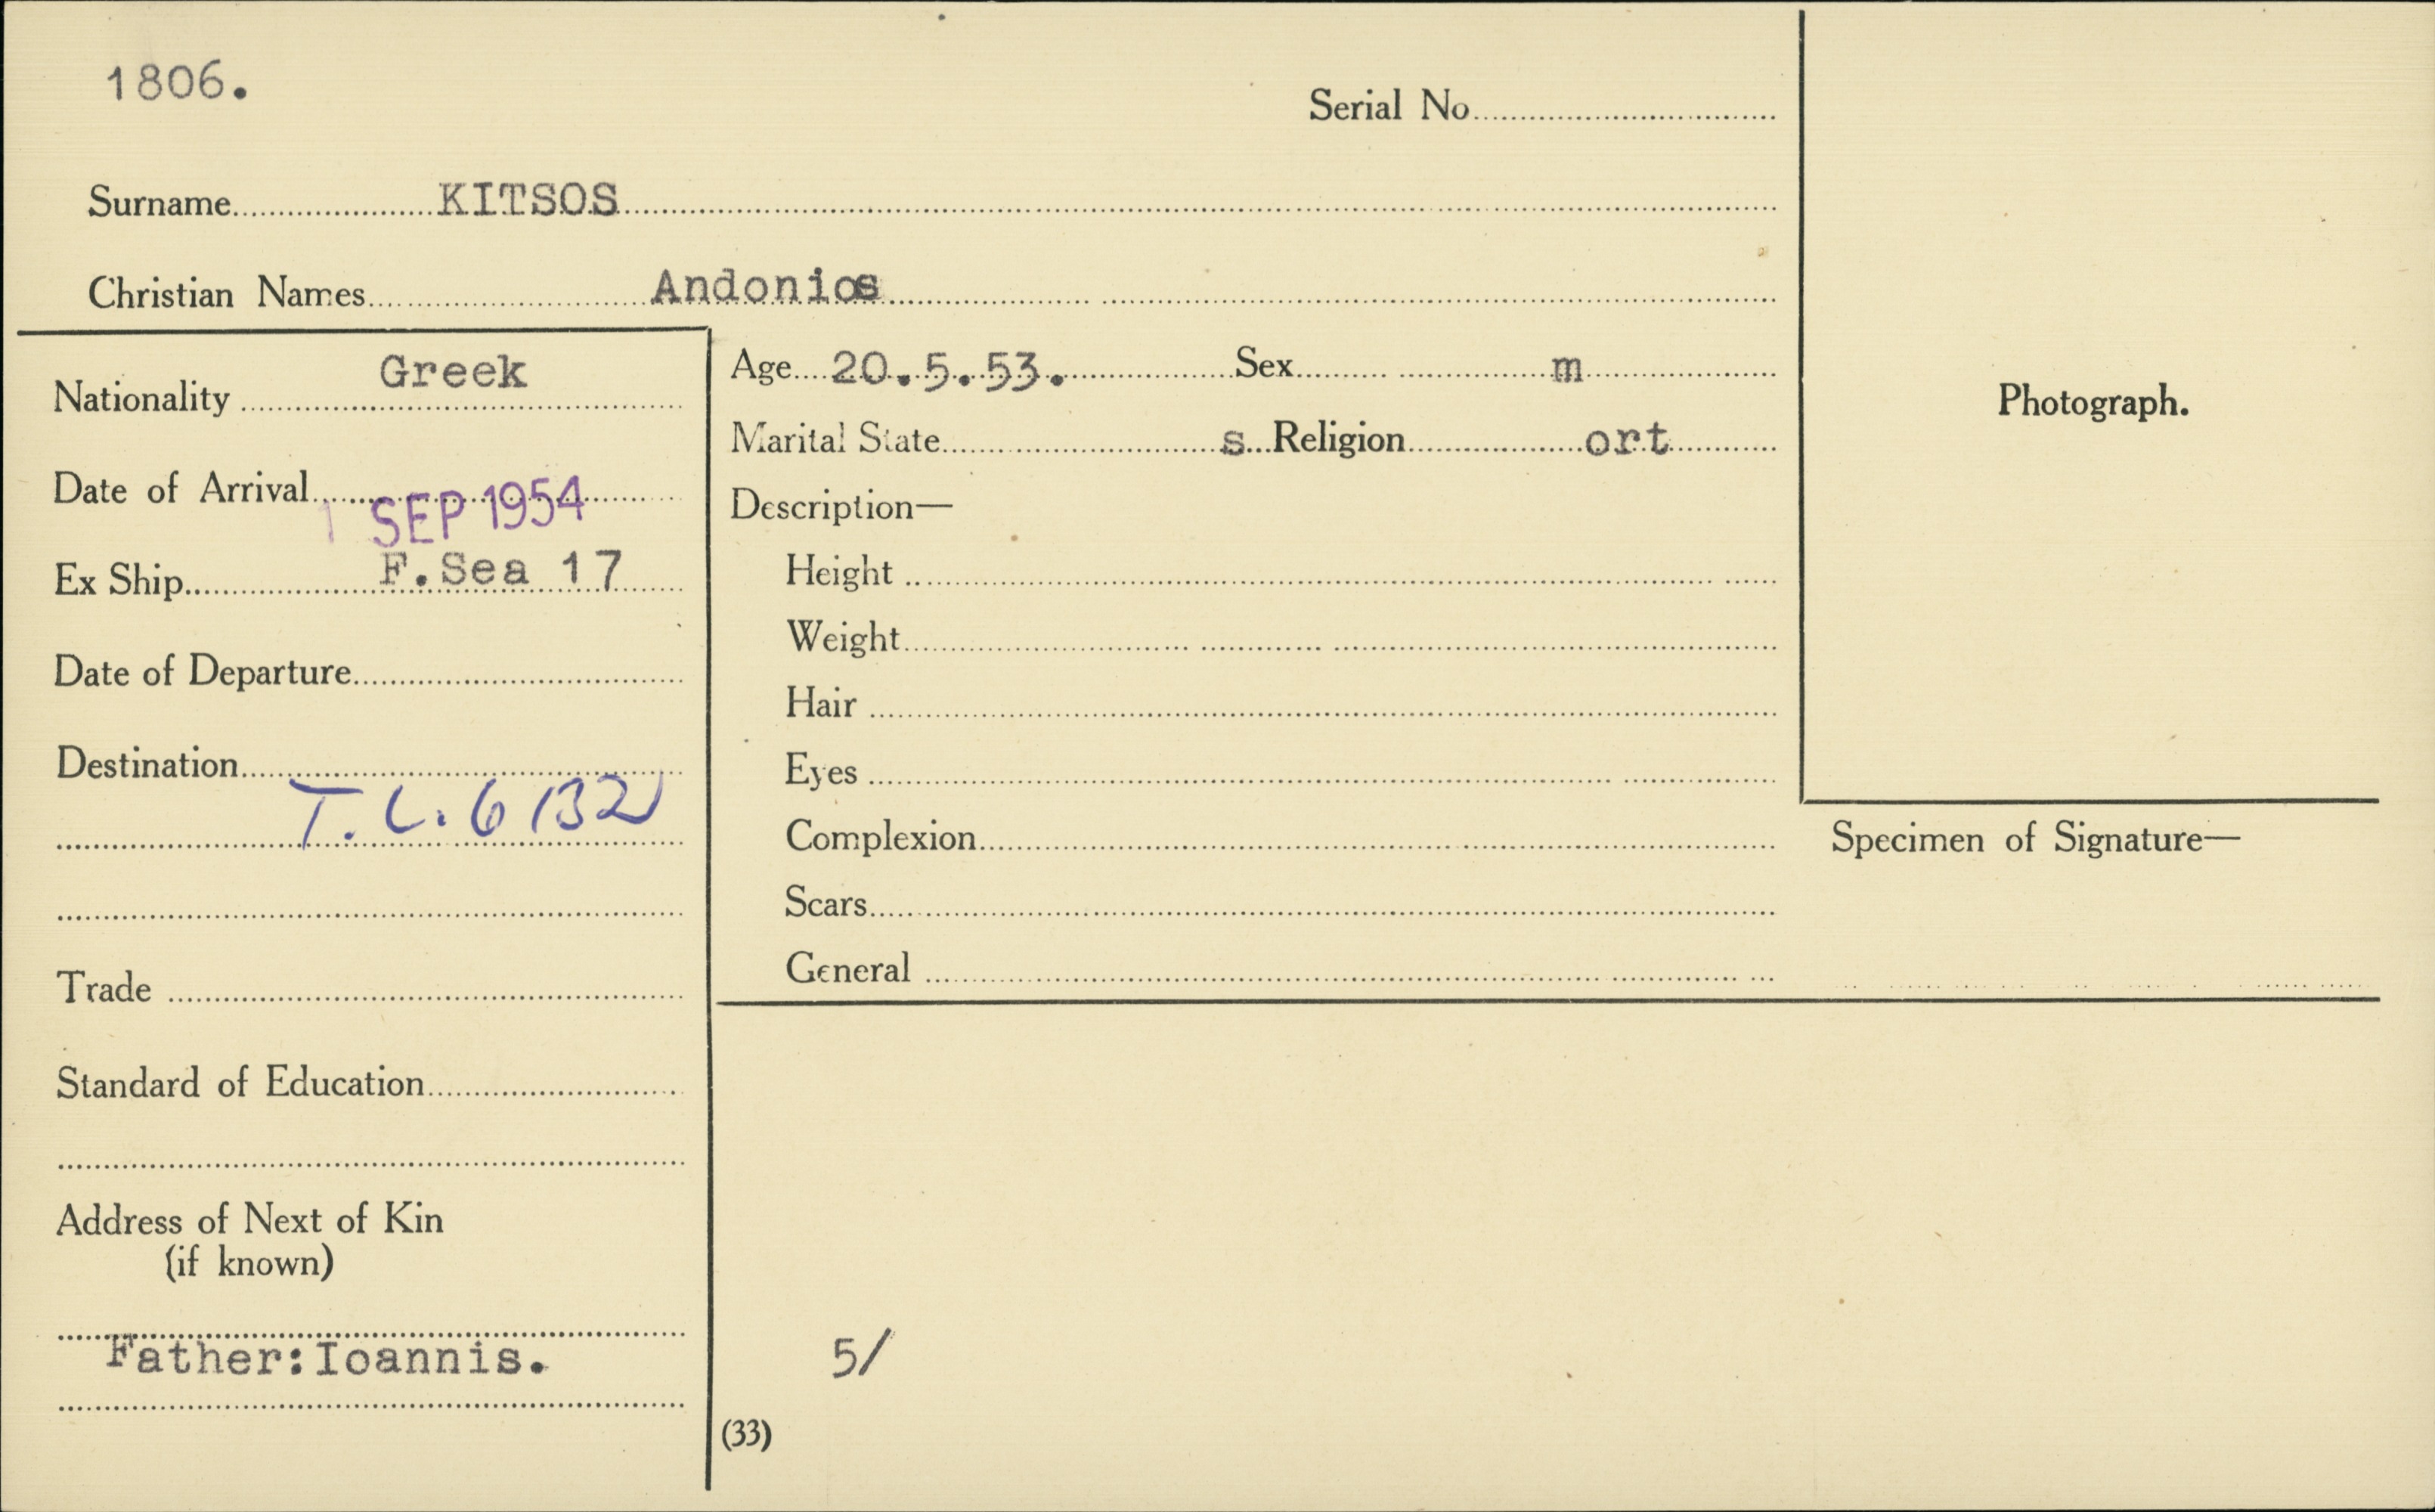 1806.
Serial No
Surname KITSOS
Christian Names Andonios
Nationality Greek
Date of Arrival 1 SEP 1954
Ex Ship F.Sea 17
Date of Departure
Destination
T. C. 6132
Trade
Standard of Education
Address of Next of Kin
(if known)
Father:Ioannis.
Age 20.5.53. Sex m
Marital State s Religion ort
Description—
Height
Weight
Hair
Eyes
Complexion
Scars
General
5/
(33)
Photograph.
Specimen of Signature—